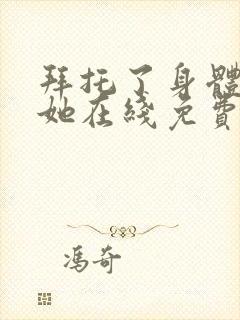 拜托了身體
她在綫免費
馮奇